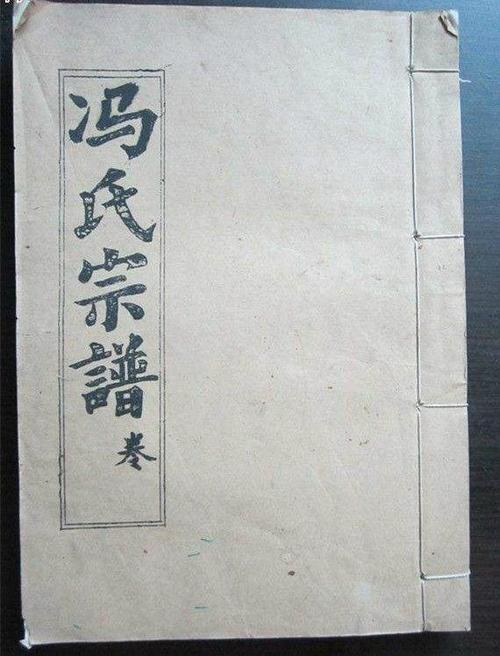 冯氏宗譜
卷